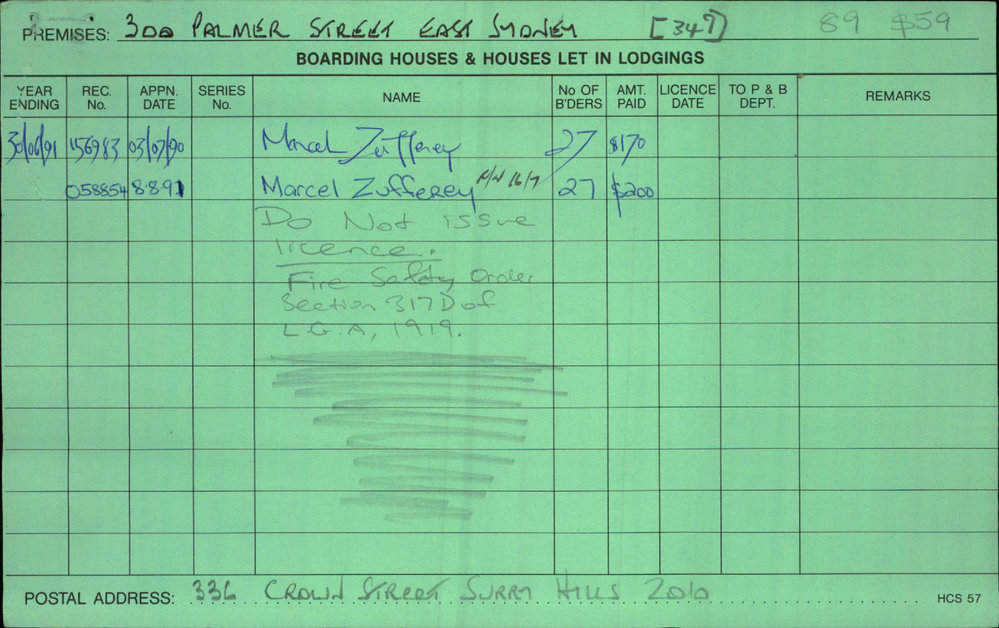 PREMISES: 300 PALMER STREET EAST SYDNEY [349] 89 $59
BOARDING HOUSES & HOUSES LET IN LODGINGS
YEAR ENDING REC. No. APPN. DATE SERIES No. NAME No OF B'DERS AMT. PAID LICENCE DATE TO P & B DEPT. REMARKS
30/06/91 156983 03/07/90 Marcel Zufferey 27 $170
058854 8.8.91 Marcel Zufferey 16/7 27 $200
Do Not issue
licence.
Fire Safety Order
Section 317D of
L.G.A, 1919.
POSTAL ADDRESS: 336 CROWN STREET SURRY HILLS 2010 HCS 57